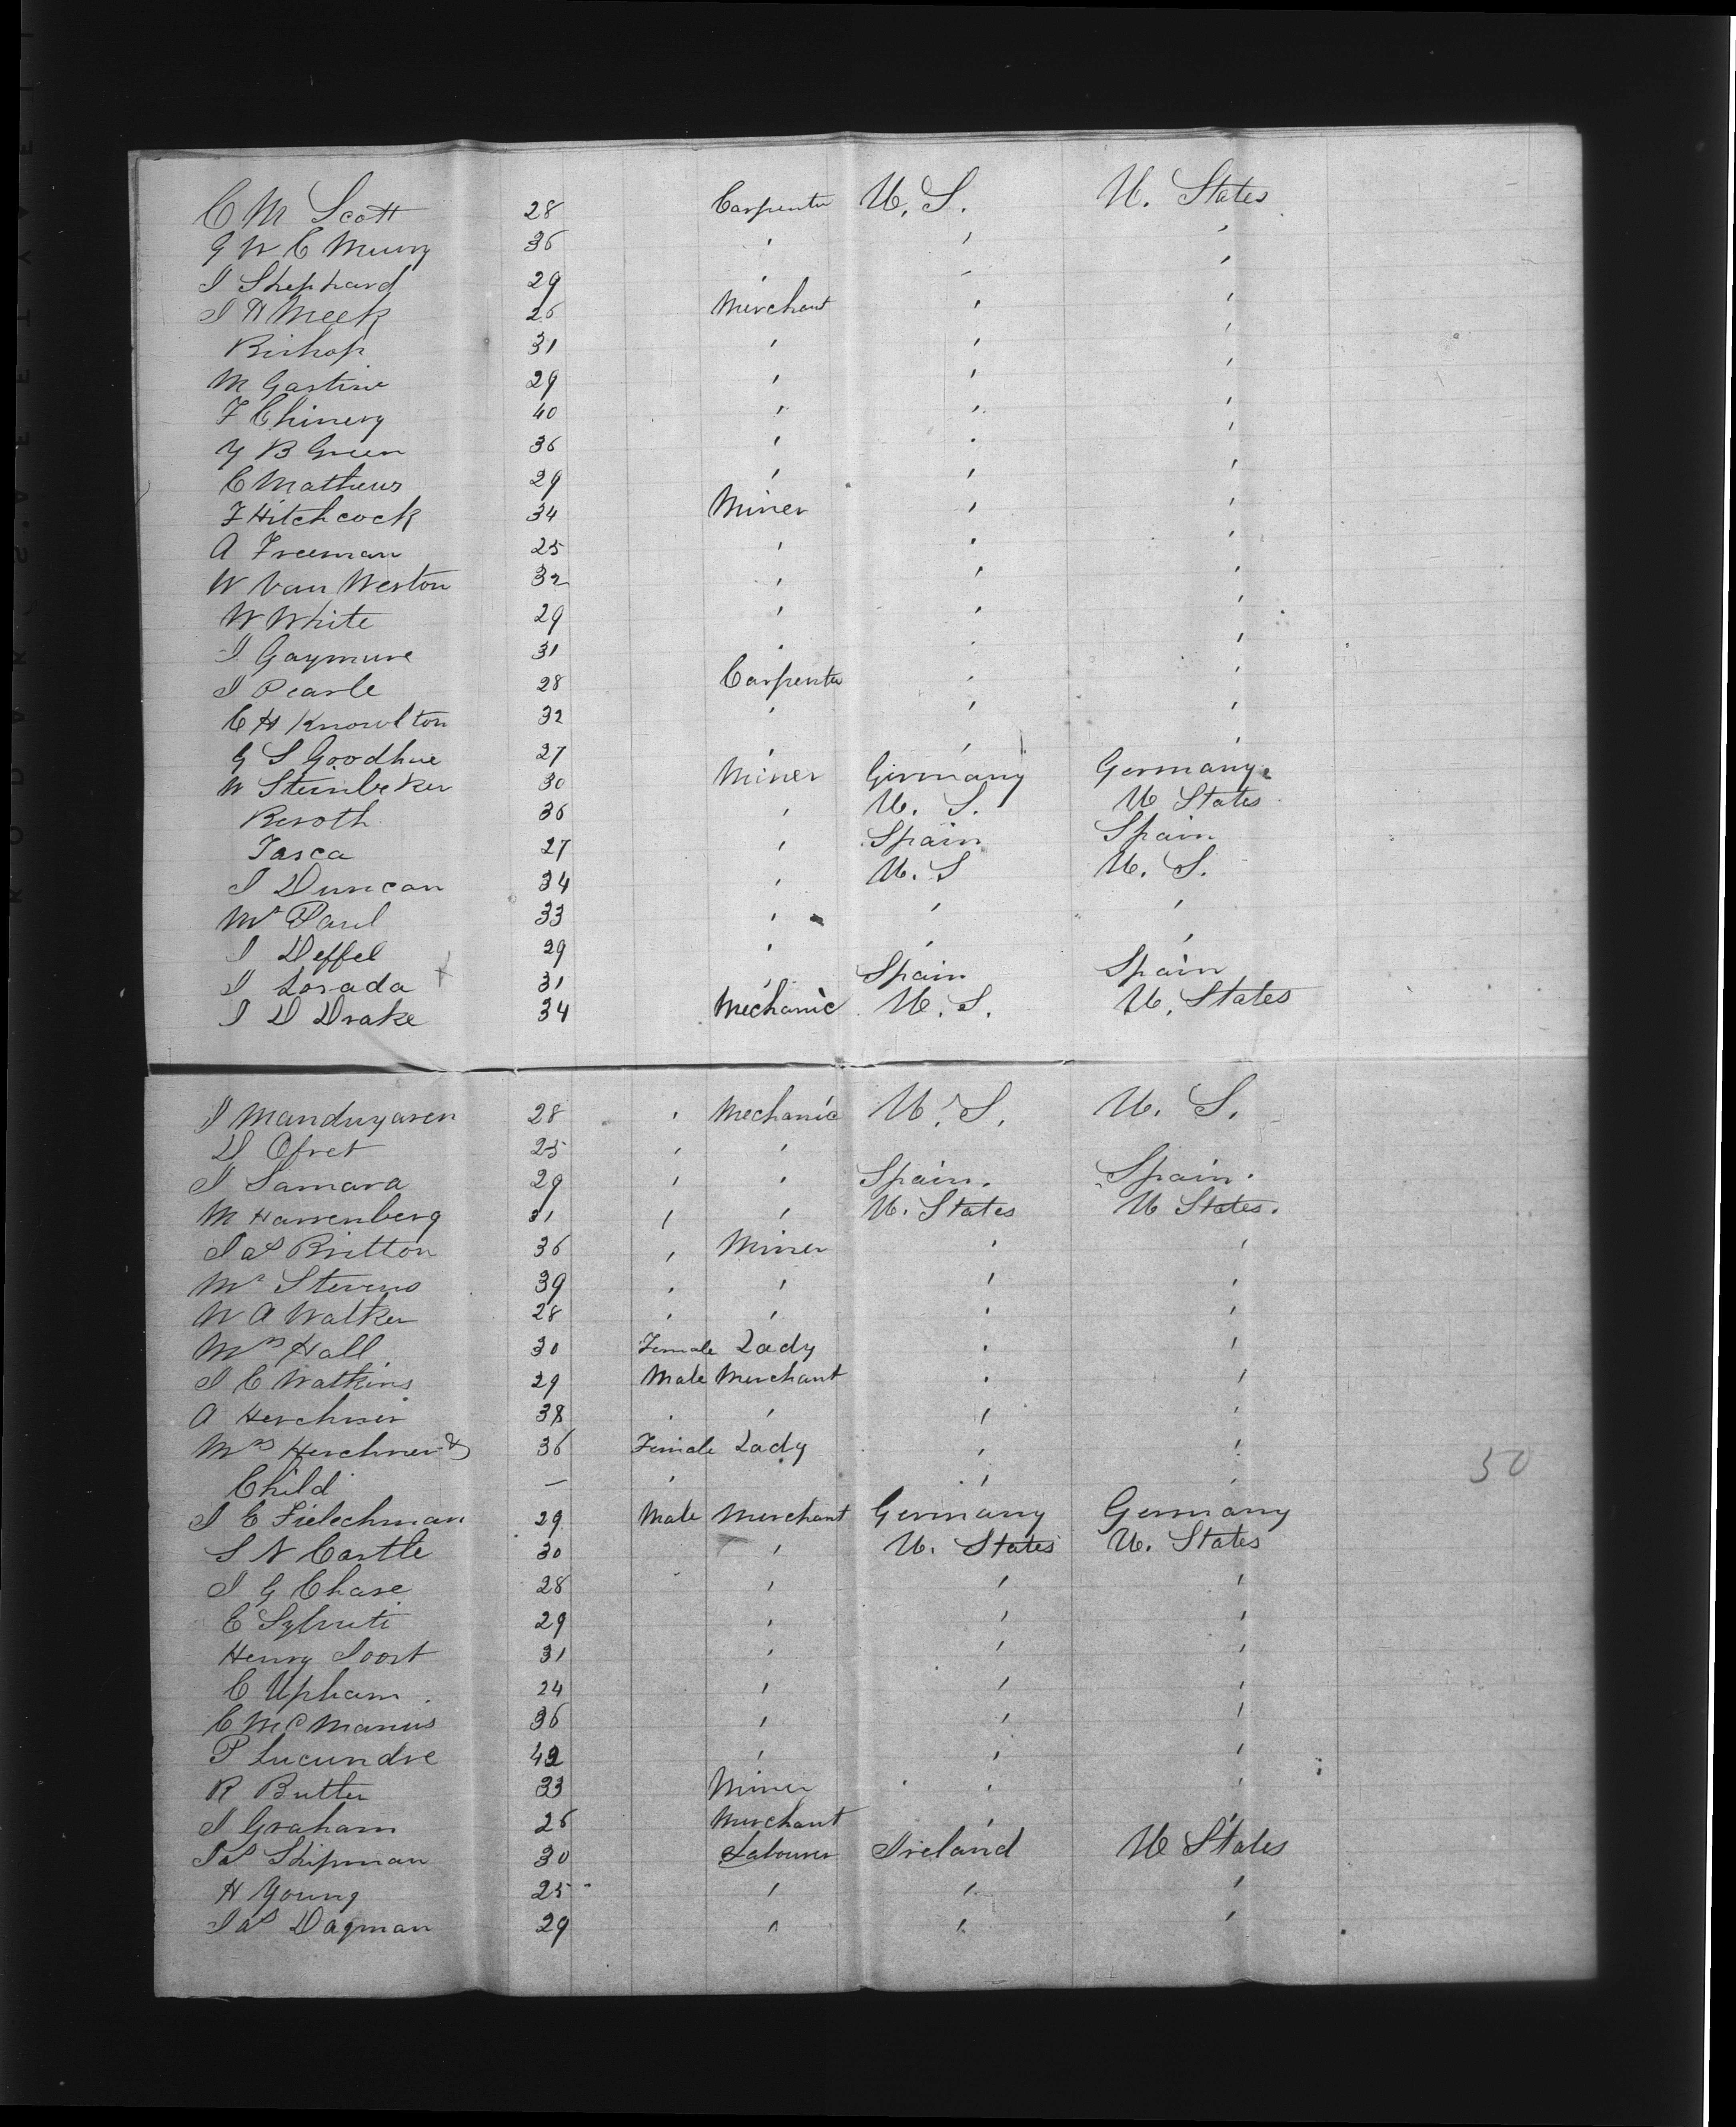 C M Scott 28 Carpenter U. S. U. States
G W C Murry 36 " " "
I Shephard 29 " " "
I H Meek 26 Merchant " "
Bishop 31 " " "
M Gastine 29 " " "
F Chinery 40 " " "
Y B Green 36 " " "
C Mathews 29 " " "
F Hitchcock 34 Miner " "
A Freeman 25 " " "
W Van Weston 32 " " "
W White 29 " " "
I Gaymure 31 " " "
I Pearle 28 Carpenter " "
C H Knowlton 32 " " "
G S Goodhue 27 " " "
W Steinbeker 30 Miner Germany Germany
Beroth 36 " U. S. U States
Tasca 27 " Spain Spain
I Duncan 34 " U. S U. S.
Mr Paul 33 " " "
I Deffel 29 " " "
I Losada 31 " Spain Spain
I D Drake 34 Mechanic U. S. U. States
I Manduyaren 28 " Mechanic U. S. U. S.
D Ofret 25 " "
I Samara 29 " " Spain. Spain.
M Harrenberg 31 " " U. States U States.
Jas Britton 36 " Miner " "
Mr Stevens 39 " " " "
W A Walker 28 " " " "
Mrs Hall 30 Female Lady " "
I C Watkins 29 Male Merchant " "
A Herchner 38 " " " "
Mrs Herchner & 36 Female Lady " "
Child — " " "
I E Fielechman 29 Male Merchant Germany Germany
S N Castle 30 " U. States U. States
I G Chase 28 " " "
C Sylvuti 29 " " "
Henry Joost 31 " " "
C Upham 24 " " "
C McManus 36 " " "
P Lucundre 42 " " "
R Butter 33 Miner " "
I Graham 26 Merchant " "
Jas Shipman 30 Labourer Ireland U States
H Young 25 " " "
Jas Dagman 29 " " "
50